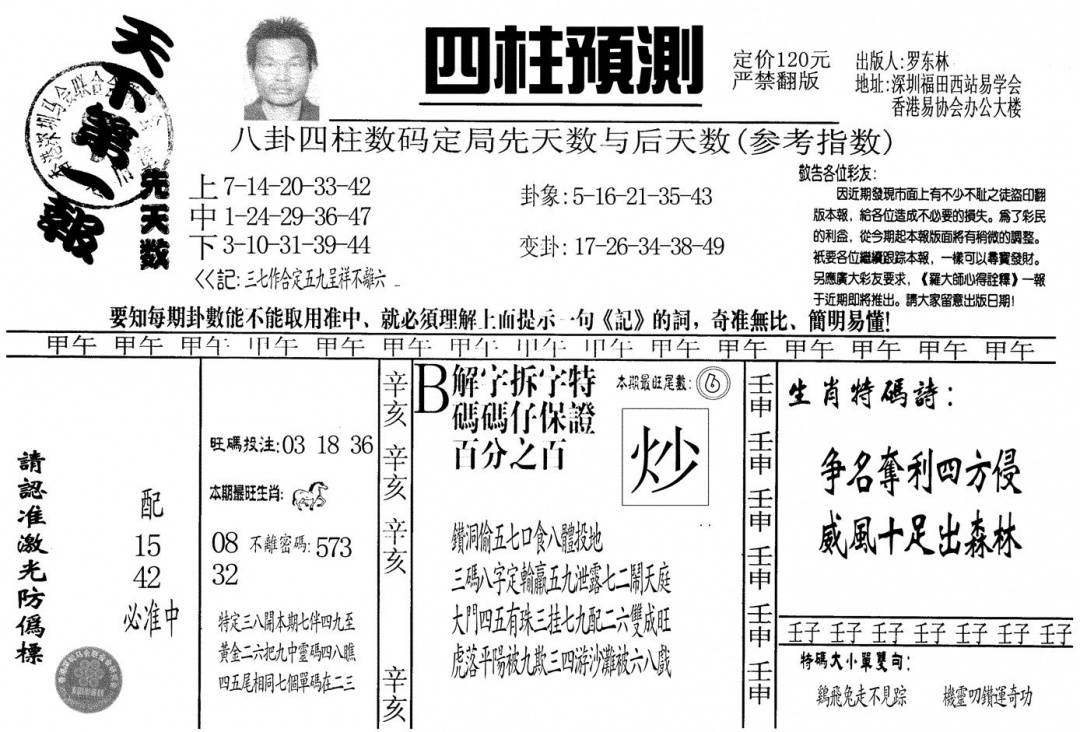 天下第一報
先天数
四柱預測
定价120元
严禁翻版
出版人:罗东林
地址:深圳福田西站易学会
香港易协会办公大楼
八卦四柱数码定局先天数与后天数(参考指数)
上 7-14-20-33-42
中 1-24-29-36-47
下 3-10-31-39-44
<<記:三七作合定五九呈祥不離六
卦象:5-16-21-35-43
变卦:17-26-34-38-49
敬告各位彩友:
因近期發現市面上有不少不耻之徒盜印翻
版本報,給各位造成不必要的損失。爲了彩民
的利益,從今期起本報版面將有稍微的調整。
祇要各位繼續跟踪本報,一樣可以尋寶發財。
另應廣大彩友要求,《羅大師心得詮釋》一報
于近期即將推出。請大家留意出版日期!
要知每期卦數能不能取用准中、就必須理解上面提示一句《記》的詞,奇准無比、簡明易懂!
甲午 甲午 甲午 甲午 甲午 甲午 甲午 甲午 甲午 甲午 甲午 甲午 甲午 甲午 甲午
請認准激光防僞標
配
15
42
必准中
旺碼投注:03 18 36
本期最旺生肖:
08 不離密碼:573
32
特定三八開本期七伴四九至
黃金二六把九中靈碼四八瞧
四五尾相同七個單碼在二三
辛亥
辛亥
辛亥
辛亥
B解字拆字特
碼碼仔保證
百分之百
本期最旺尾數:6
炒
鑽洞偷五七口食八體投地
三碼八字定輸贏五九泄露七二鬧天庭
大門四五有珠三挂七九配二六雙成旺
虎落平陽被九欺三四游沙灘被六八戲
壬申
壬申
壬申
壬申
壬申
壬申
生肖特碼詩:
争名奪利四方侵
威風十足出森林
壬子 壬子 壬子 壬子 壬子 壬子 壬子
特碼大小單雙句:
鷄飛兔走不見踪 機靈叨鑽運奇功